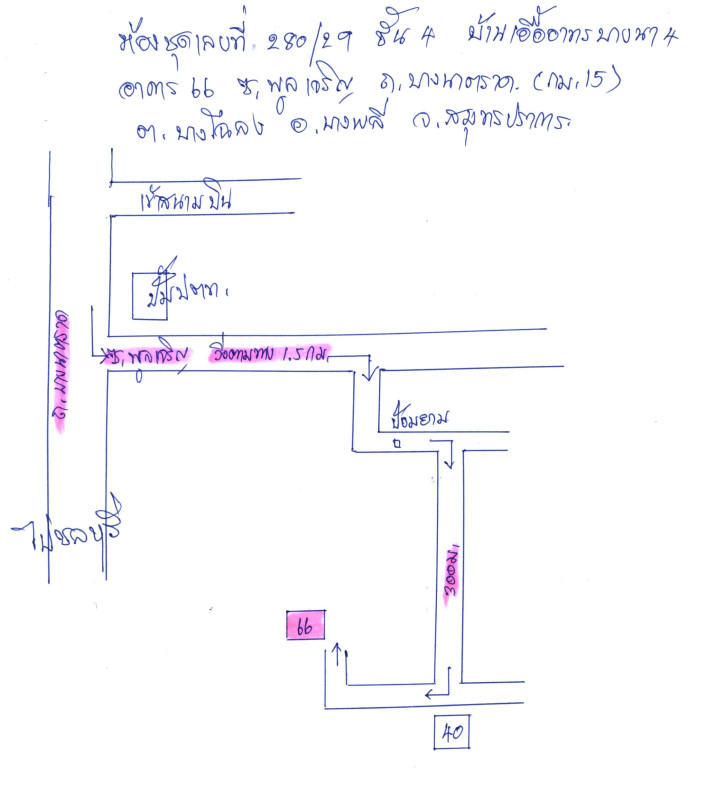 ห้องชุดเลขที่ 280/29 ชั้น 4 บ้านเอื้ออาทรบางนา 4
อาคาร 66 ซ.พูลเจริญ ถ.บางนาตราด (กม.15)
ต.บางโฉลง อ.บางพลี จ.สมุทรปราการ
เข้าสนามบิน
ปั๊มปตท.
ถ.บางนาตราด
ซ.พูลเจริญ วิ่งตามทาง 1.5 กม.
ป้อมยาม
ไปชลบุรี
300 ม.
66
40